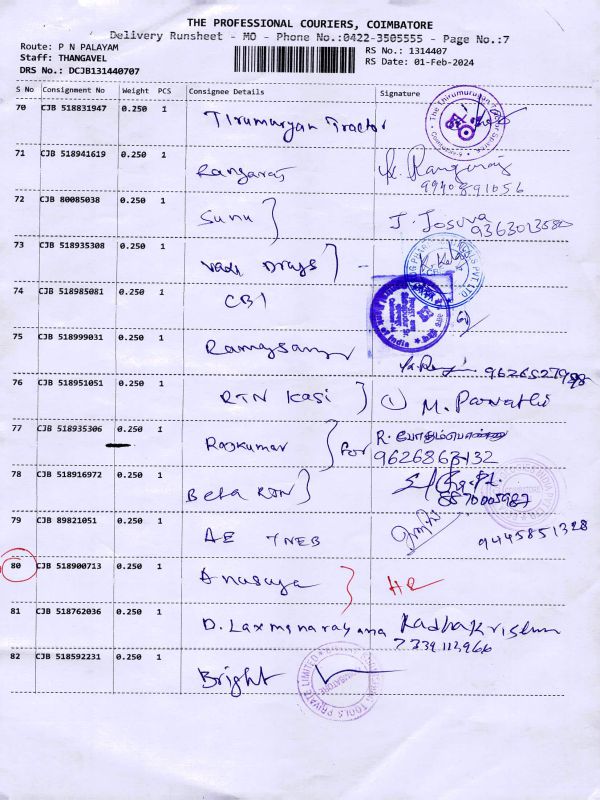 THE PROFESSIONAL COURIERS, COIMBATORE
Delivery Runsheet - MO - Phone No.:0422-3505555 - Page No.:7
Route: P N PALAYAM
Staff: THANGAVEL
DRS No.: DCJB131440707
RS No.: 1314407
RS Date: 01-Feb-2024
S No Consignment No Weight PCS Consignee Details Signature
70 CJB 518831947 0.250 1 Tirumurgan Tractor
71 CJB 518941619 0.250 1 Rangaraj Rangaraj
9940891056
72 CJB 80085038 0.250 1 Sunu J. Josuva
9363023580
73 CJB 518935308 0.250 1 Vadi Drugs
74 CJB 518985081 0.250 1 CBI
75 CJB 518999031 0.250 1
76 CJB 518951051 0.250 1 RTN Kasi 1 M. Parvathi
77 CJB 518935306 0.250 1 Rajkumar for R.
9626863132
78 CJB 518916972 0.250 1 Beta RTN
8870005987
79 CJB 89821051 0.250 1 AE TNEB 9445851328
80 CJB 518900713 0.250 1 Anasuya HR
81 CJB 518762036 0.250 1 D. Laxmanarayana Radhakrishnan
7339112966
82 CJB 518592231 0.250 1 Bright